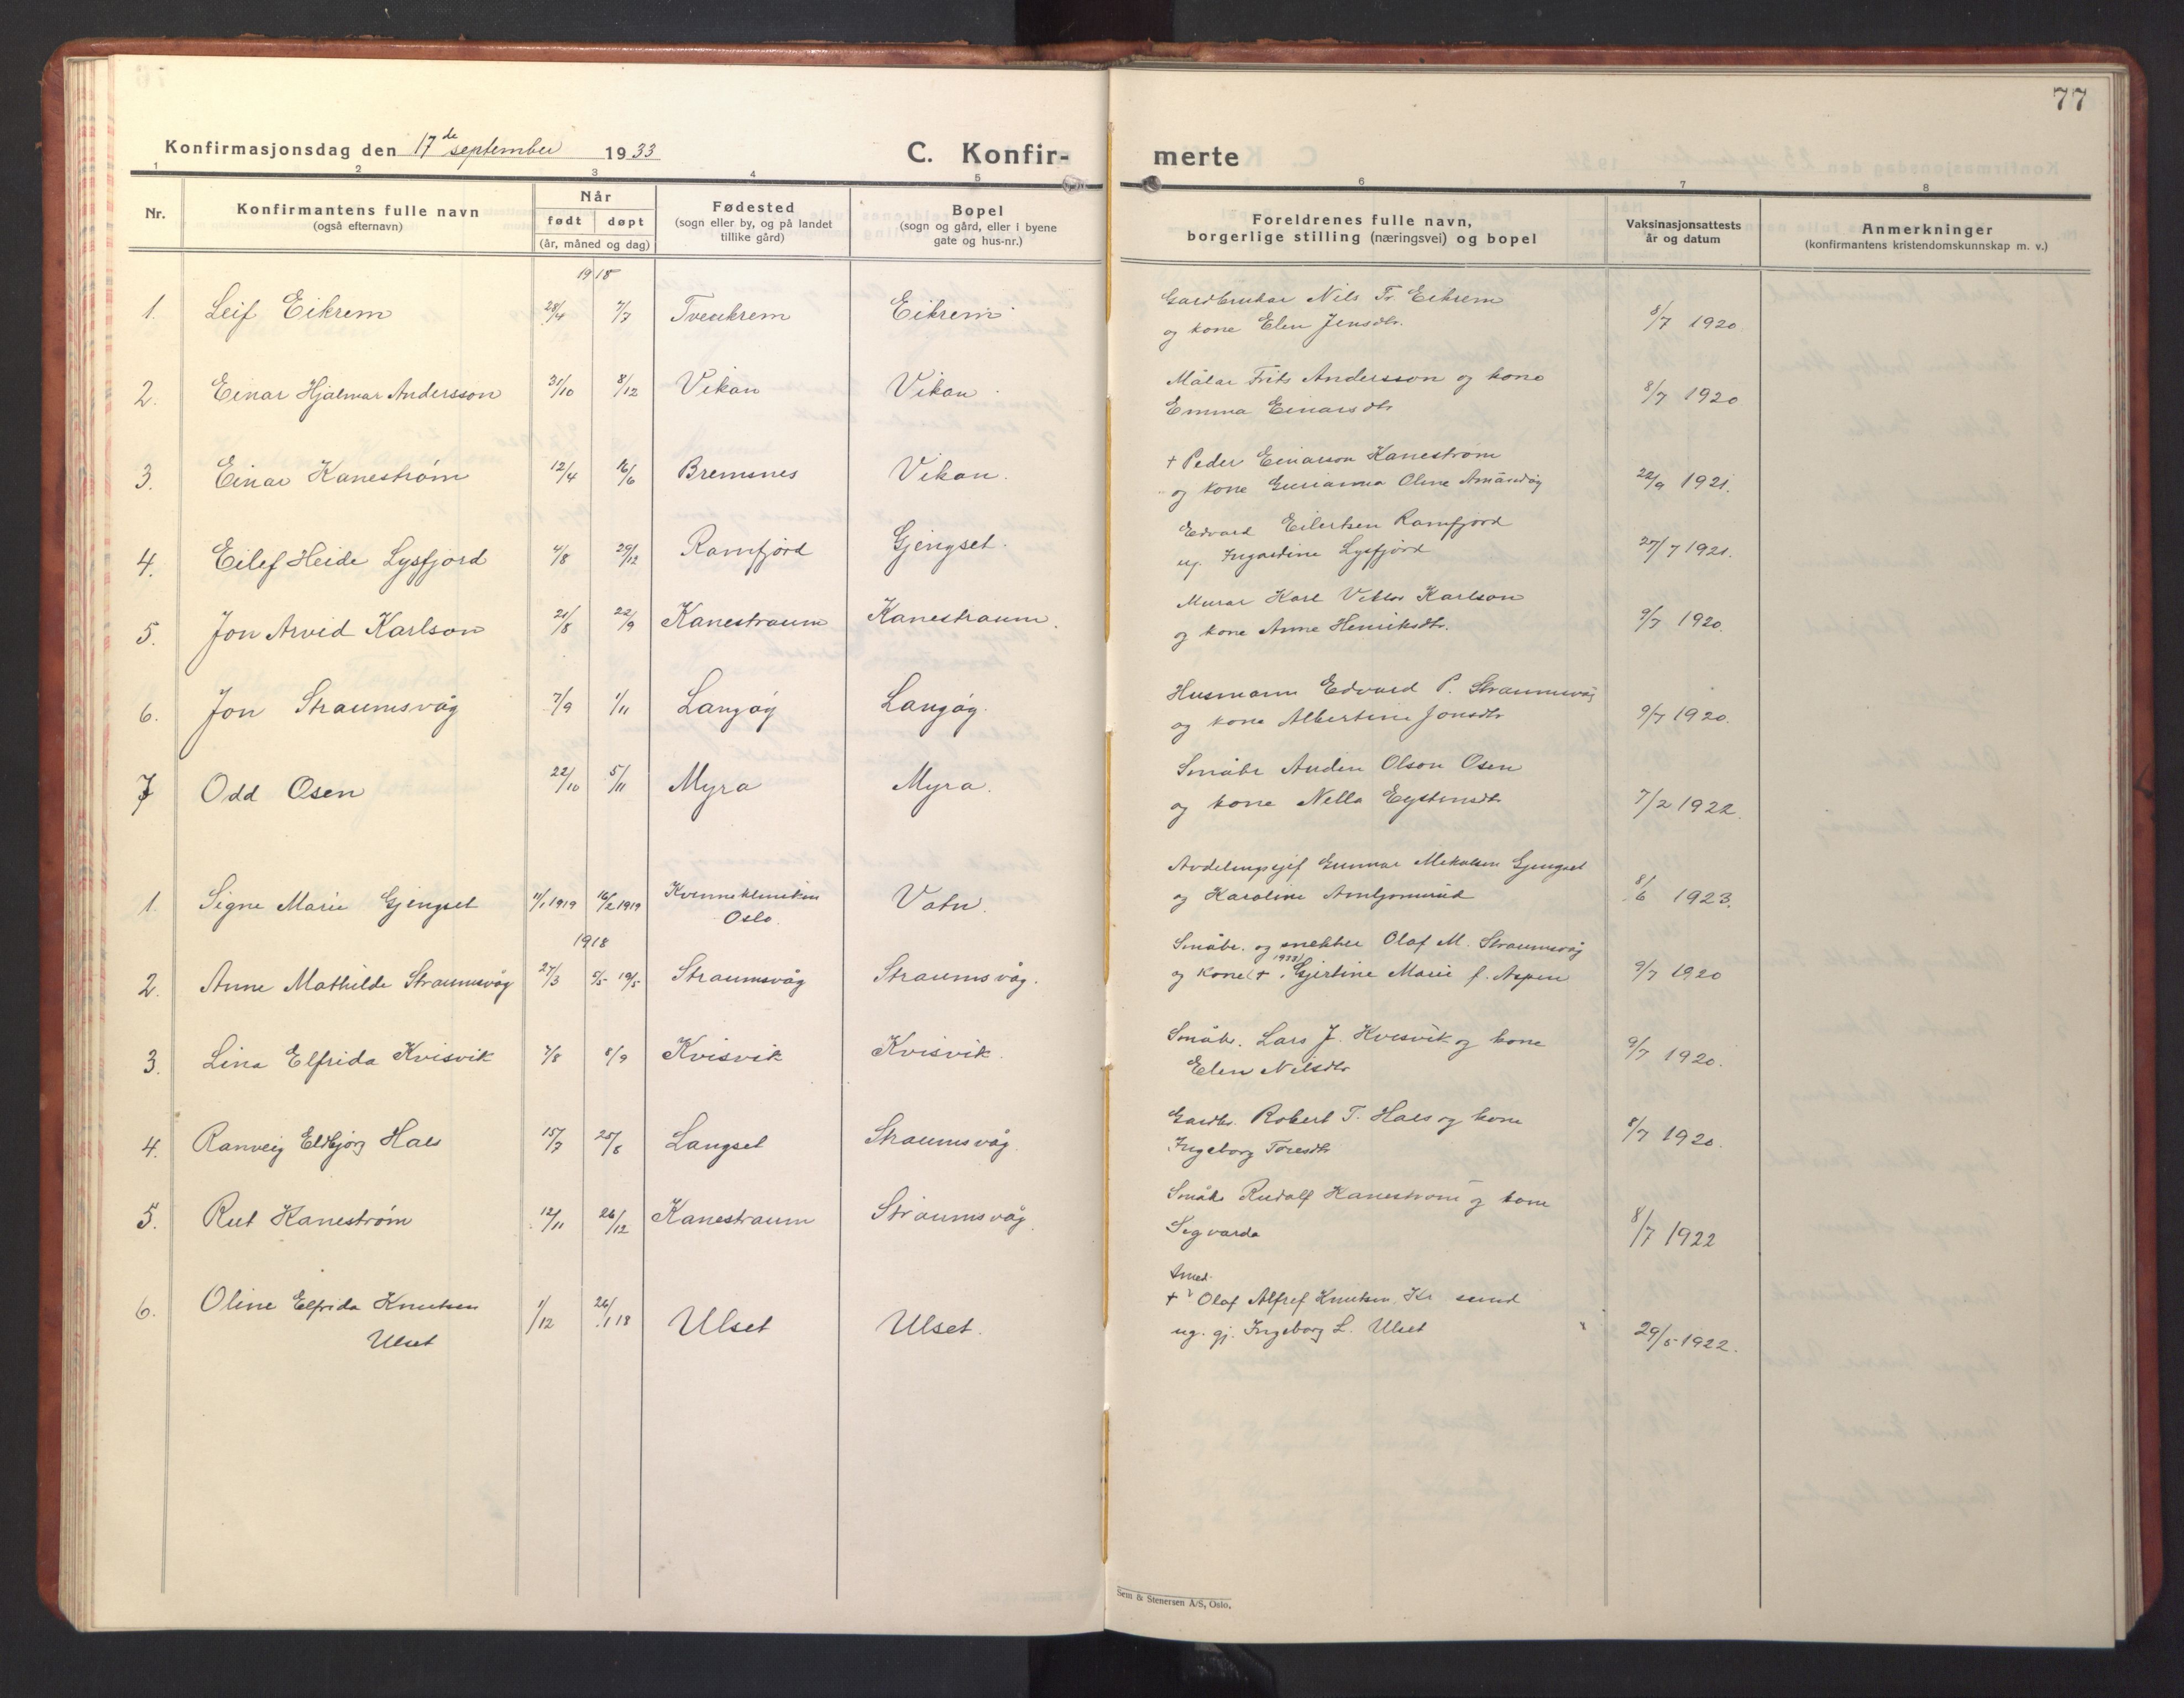 77
Konfirmasjonsdag den 17de september 1933
C. Konfir- merte
1 2 3 4 5 6 7 8
Nr.
Konfirmantens fulle navn
(også efternavn)
Når
født døpt
(år, måned og dag)
Fødested
(sogn eller by, og på landet
tillike gård)
Bopel
(sogn og gård, eller i byene
gate og hus-nr.)
Foreldrenes fulle navn,
borgerlige stilling (næringsvei) og bopel
Vaksinasjonsattests
år og datum
Anmerkninger
(konfirmantens kristendomskunnskap m. v.)
1918
1. Leif Eikrem 28/4 7/7 Eikrem Gardbrukar Nils Tr. Eikrem
og kone Elen Jensdtr. 8/7 1920
2. Einar Hjalmar Andersson 31/10 8/12 Vikan Vikan Målar Frits Andersson og kone
Emma Einarsdtr 8/7 1920
3. Einar Kanestrøm 12/4 16/6 Bremsnes Vikan. + Peder Einarson Kanestrøm
og kone Gurianna Oline 22/9 1921.
4. Eilef Heide Lysfjord 4/8 29/12 Ramfjord Gjengset. Edvard Eilertsen Ramfjord
ug. Ingardine Lysfjord 27/7 1921.
5. Jon Arvid Karlson 21/8 22/9 Kanestraum Kanestraum. Murar Karl Karlson
og kone Anne Henriksdtr. 9/7 1920.
6. Jon Straumsvåg 7/9 1/11 Langøy Langøy. Husmann Edvard P. Straumsvåg
og kone Albertine Jonsdtr 9/7 1920.
7 Odd Osen 22/10 5/11 Myra Myra. Småbr Anden Olson Osen
og kone Nella Eystensdtr 7/2 1922.
1 Signe Marie Gjengset 11/1 1919 16/2 1919 Kvinneklinikken
Oslo. Vatn. Avdelingssjef Gunnar Mekalsen Gjengset
og Karoline 8/6 1923.
1918
2. Anne Mathilde Straumsvåg 27/3 5/5 - 19/5 Straumsvåg Straumsvåg. Småbr. og snekker Olaf M. Straumsvåg
og kone (+ 1933) Gjertine Marie f. Aspen 9/7 1920
3. Lina Elfrida Kvisvik 7/8 8/9 Kvisvik Kvisvik. Småbr. Lars J. Kvisvik og kone
Elen Nilsdtr 9/7 1920.
4. Ranveig Eldbjørg Hals 15/7 25/8 Langset Straumsvåg. Gardbr. Robert T. Hals og kone
Ingeborg Toresdtr 8/7 1920.
5. Rut Kanestrøm 12/11 26/12 Kanestraum Straumsvåg. Småbr Rudolf Kanestrøm og kone
Segvarda 8/7 1922
6. Oline Elfrida Knutsen
Ulset 1/12 26/1 18 Ulset Ulset. Smed
+ Olaf Alfref Knutsen Kr sund
ug. gj. Ingeborg L. Ulset 29/5 1922.
Sem & Stenersen A/S, Oslo.